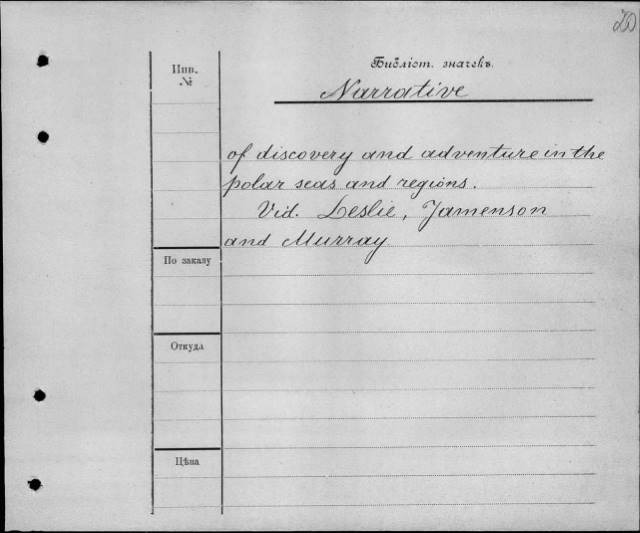 Инв.
№
Библіот. значекъ.
Narrative
of discovery and adventure in the
polar seas and regions.
Vid. Leslie, Jamenson
and Murray
По заказу
Откуда
Цѣна